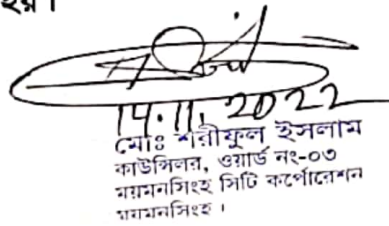 হয়।
14.11.2022
মোঃ শরীফুল ইসলাম
কাউন্সিলর, ওয়ার্ড নং-০৩
ময়মনসিংহ সিটি কর্পোরেশন
ময়মনসিংহ।